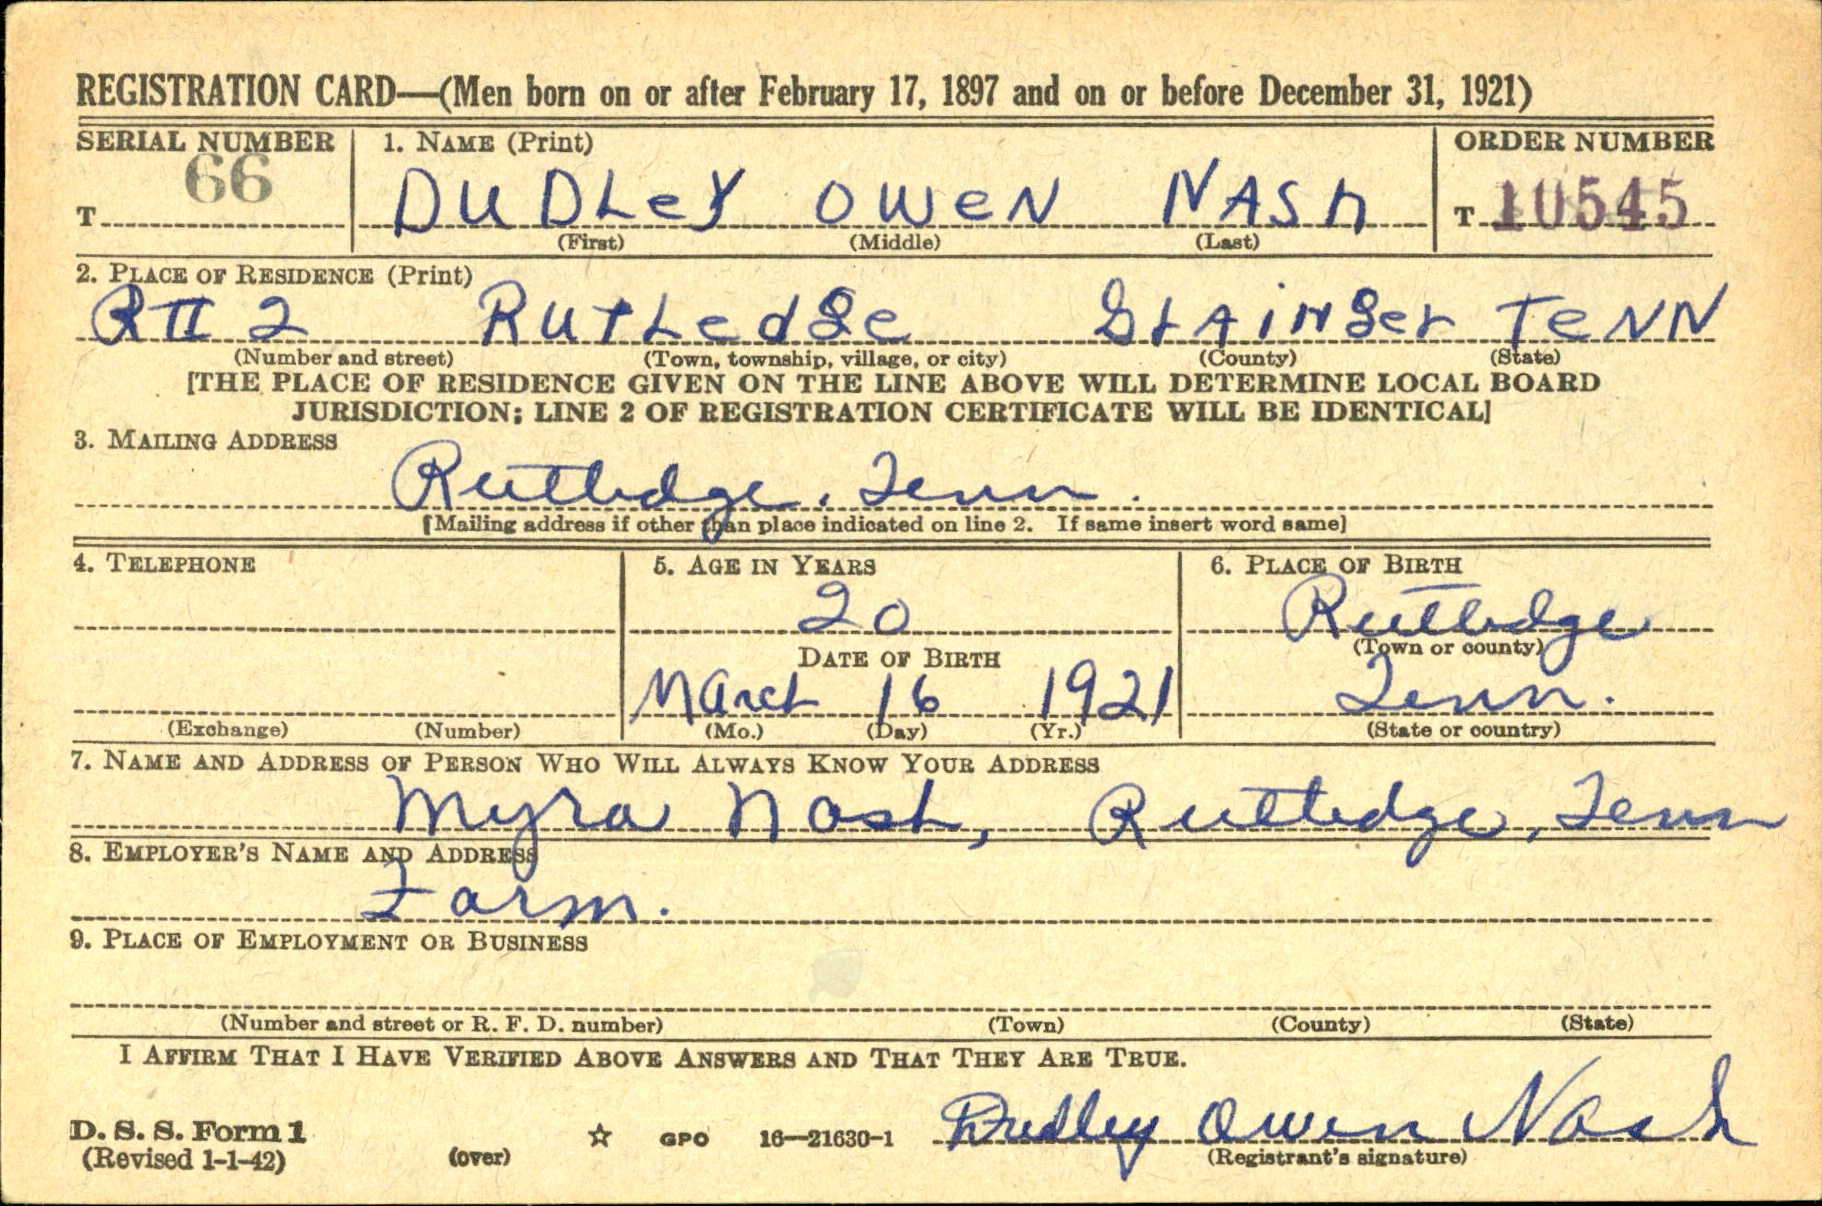 REGISTRATION CARD—(Men born on or after February 17, 1897 and on or before December 31, 1921)
SERIAL NUMBER 1. NAME (Print) ORDER NUMBER
T 66 DUDLeY OWeN NASh T 10545
(First) (Middle) (Last)
2. PLACE OF RESIDENCE (Print)
R II 2 RuTLedge GrAiNger TeNN
(Number and street) (Town, township, village, or city) (County) (State)
[THE PLACE OF RESIDENCE GIVEN ON THE LINE ABOVE WILL DETERMINE LOCAL BOARD
JURISDICTION; LINE 2 OF REGISTRATION CERTIFICATE WILL BE IDENTICAL]
3. MAILING ADDRESS
Rutledge, Tenn.
[Mailing address if other than place indicated on line 2. If same insert word same]
4. TELEPHONE 5. AGE IN YEARS 6. PLACE OF BIRTH
20 Rutledge
DATE OF BIRTH (Town or county)
March 16 1921 Tenn.
(Exchange) (Number) (Mo.) (Day) (Yr.) (State or country)
7. NAME AND ADDRESS OF PERSON WHO WILL ALWAYS KNOW YOUR ADDRESS
Myra Nash, Rutledge, Tenn
8. EMPLOYER'S NAME AND ADDRESS
Farm.
9. PLACE OF EMPLOYMENT OR BUSINESS
(Number and street or R. F. D. number) (Town) (County) (State)
I AFFIRM THAT I HAVE VERIFIED ABOVE ANSWERS AND THAT THEY ARE TRUE.
D. S. S. Form 1 Dudley Owen Nash
(Revised 1-1-42) (over) ☆ GPO 16—21630-1 (Registrant's signature)